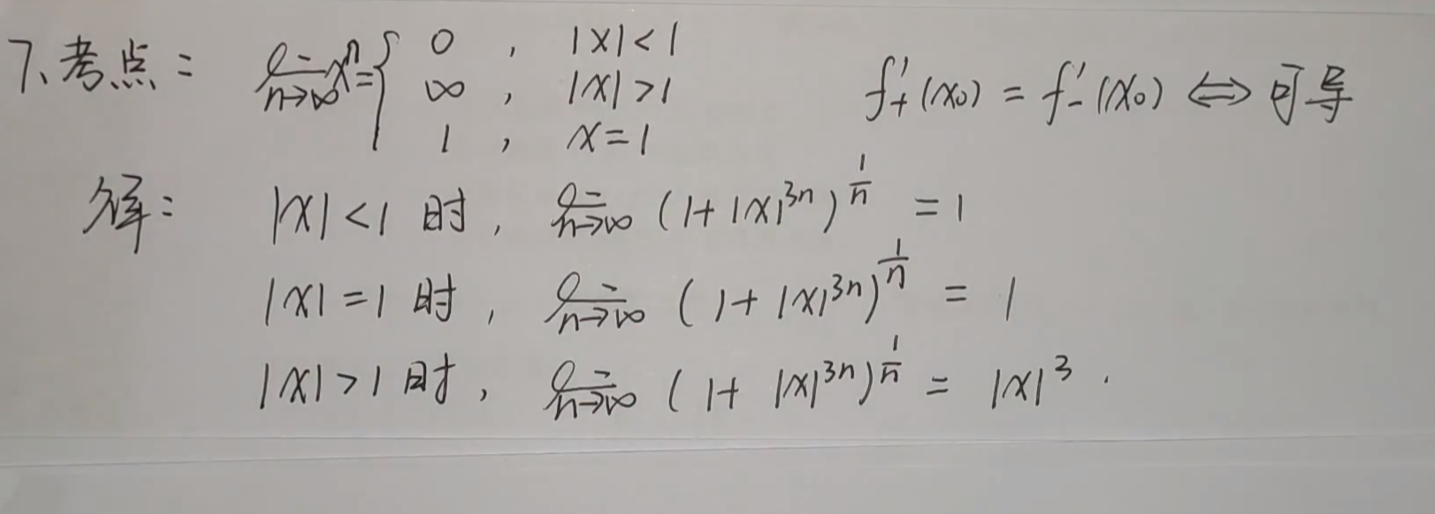 7、考点: lim n→∞ xⁿ = { 0 , |x|<1
∞ , |x|>1 f'₊(x₀) = f'₋(x₀) ⇔ 可导
1 , x=1
解: |x|<1 时, lim n→∞ (1+|x|³ⁿ)^(1/n) = 1
|x|=1 时, lim n→∞ (1+|x|³ⁿ)^(1/n) = 1
|x|>1 时, lim n→∞ (1+|x|³ⁿ)^(1/n) = |x|³ .